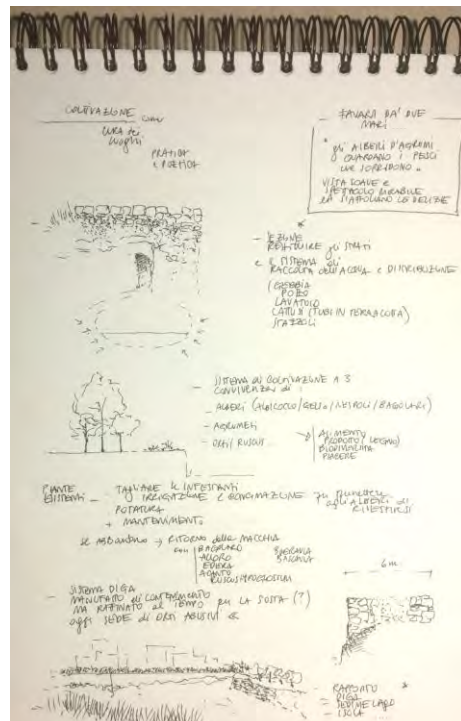 COLTIVAZIONE come
CURA dei
luoghi
PRATICA
e POETICA
FAVARA DA' DUE
MARI
" gli ALBERI D'AGRUMI
GUARDANO I PESCI
che SORRIDONO "
VISTA SOAVE e
SPETTACOLO MIRABILE
RESTITUIRE gli STATI
e il SISTEMA di
RACCOLTA dell'ACQUA e DISTRIBUZIONE
(GEBBIA
POZZO
LAVATOIO
CATUSI (TUBI IN TERRACOTTA)
- SISTEMA di COLTIVAZIONE A 3
CONVIVENZA di
- ALBERI (ALBICOCCO/GELSO/NESPOLI/BAGOLARI)
- AGRUMETI
- ORTI/RUSCUS
ALIMENTO
PRODOTTI (LEGNO)
BIODIVERSITÀ
PIACERE
PIANTE
ESISTENTI - TAGLIARE le INFESTANTI
IRRIGAZIONE e CONCIMAZIONE per permettere
agli ALBERI di
POTATURA
+ MANTENIMENTO
se ABBANDONO → RITORNO della MACCHIA
con BAGOLARO
ALLORO
EDERA
ACANTO
RUSCUS HYPOGLOSSUM
- SISTEMA DIGA
MANUFATTO di CONTENIMENTO
MA RAFFINATO al TEMPO per LA SOSTA (?)
oggi SEDE di ORTI ABUSIVI
6 m
- RAPPORTO
DIGA
- ISOLA